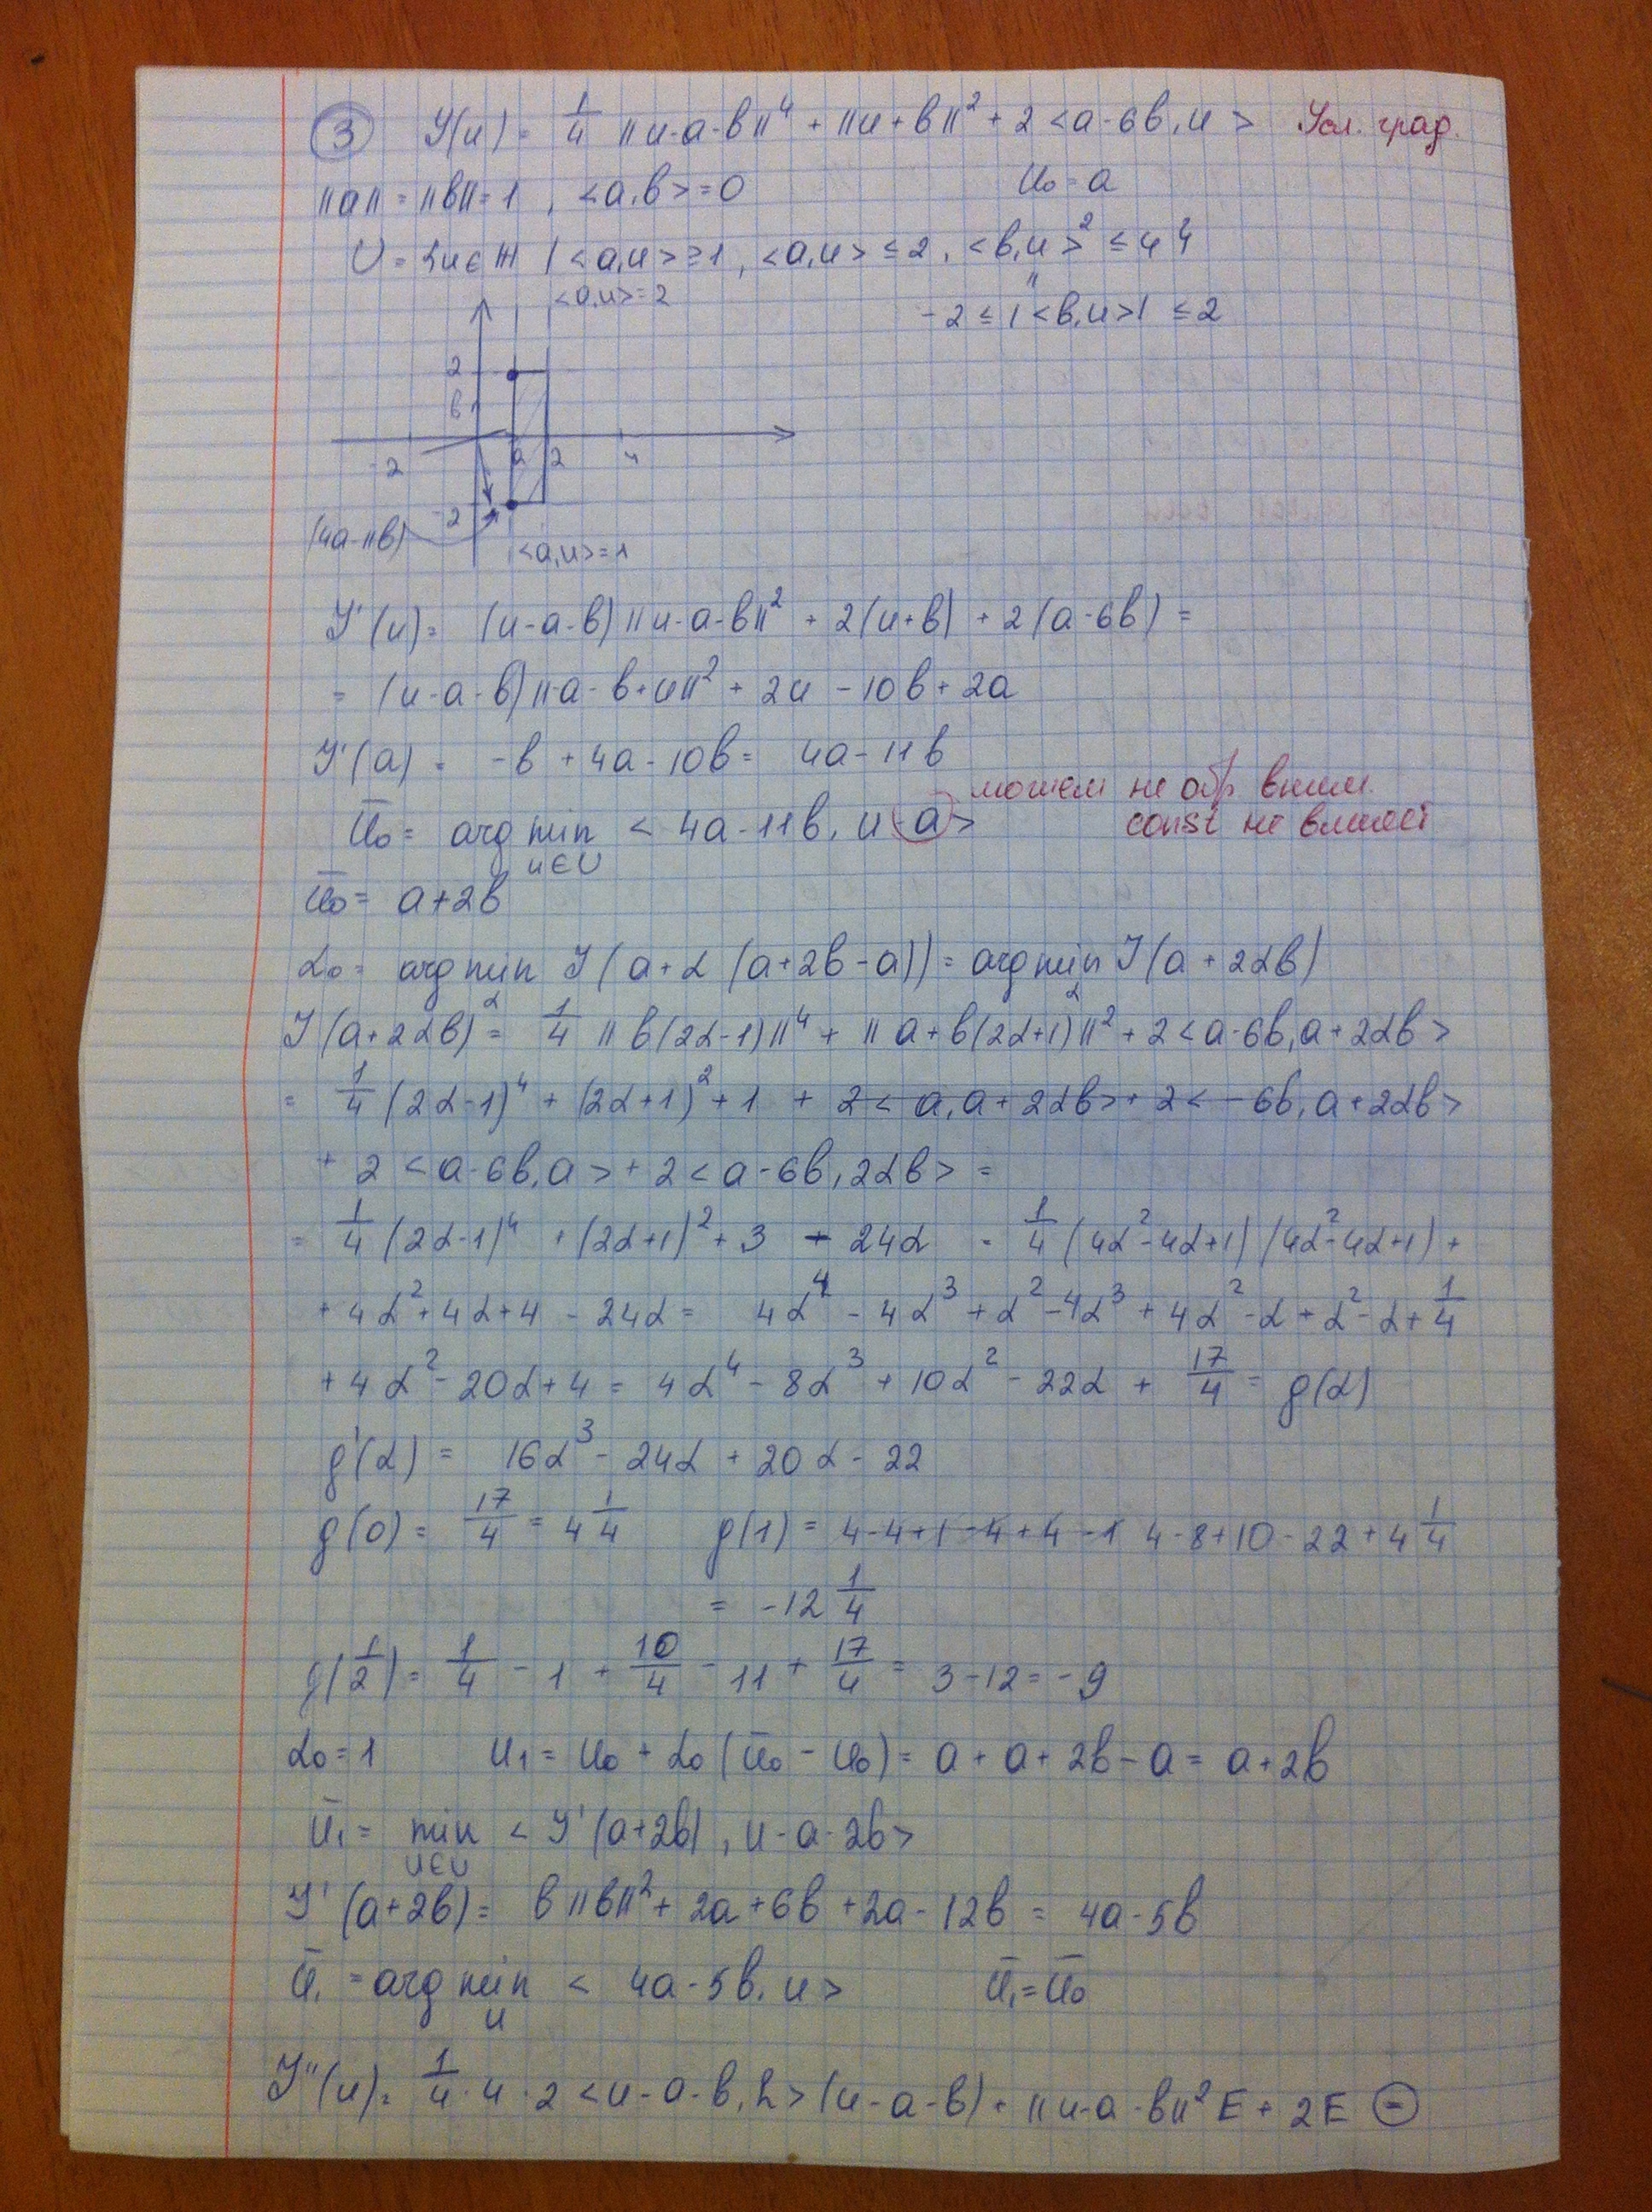 ③ J(u) = 1/4 ||u-a-b||⁴ + ||u+b||² + 2<a-6b,u> Усл. град.
||a|| = ||b|| = 1, <a,b> = 0 u₀ = a
U = {u ∈ H | <a,u> ≥ 1, <a,u> ≤ 2, <b,u>² ≤ 4}
<a,u> = 2
-2 ≤ |<b,u>| ≤ 2
2
b 1
-2 a 2 4
-2
(4a-11b)
<a,u> = 1
J'(u) = (u-a-b)||u-a-b||² + 2(u+b) + 2(a-6b) =
= (u-a-b)||-a-b+u||² + 2u - 10b + 2a
J'(a) = -b + 4a - 10b = 4a - 11b
можем не обр. вним.
ū₀ = arg min <4a-11b, u-a> const не влияет
u∈U
ū₀ = a+2b
α₀ = argmin J(a+α(a+2b-a)) = argmin J(a+2αb)
α α
J(a+2αb) = 1/4 ||b(2α-1)||⁴ + ||a+b(2α+1)||² + 2<a-6b, a+2αb>
= 1/4 (2α-1)⁴ + (2α+1)² + 1 + 2<a, a+2αb> + 2<-6b, a+2αb>
+ 2<a-6b,a> + 2<a-6b, 2αb> =
= 1/4 (2α-1)⁴ + (2α+1)² + 3 - 24α = 1/4 (4α²-4α+1)(4α²-4α+1) +
+ 4α² + 4α + 4 - 24α = 4α⁴ - 4α³ + α² - 4α³ + 4α² - α + α² - α + 1/4
+ 4α² - 20α + 4 = 4α⁴ - 8α³ + 10α² - 22α + 17/4 = g(α)
g'(α) = 16α³ - 24α + 20α - 22
g(0) = 17/4 = 4 1/4 g(1) = 4-4+1-4+4-1 4-8+10-22+4 1/4
= -12 1/4
g(1/2) = 1/4 - 1 + 10/4 - 11 + 17/4 = 3-12 = -9
α₀ = 1 u₁ = u₀ + α₀(ū₀ - u₀) = a + a + 2b - a = a + 2b
ū₁ = min <J'(a+2b), u-a-2b>
u∈U
J'(a+2b) = b||b||² + 2a + 6b + 2a - 12b = 4a - 5b
ū₁ = arg min <4a-5b, u> ū₁ = ū₀
u
J''(u) = 1/4 · 4 · 2<u-a-b, h>(u-a-b) + ||u-a-b||² E + 2E ⊜